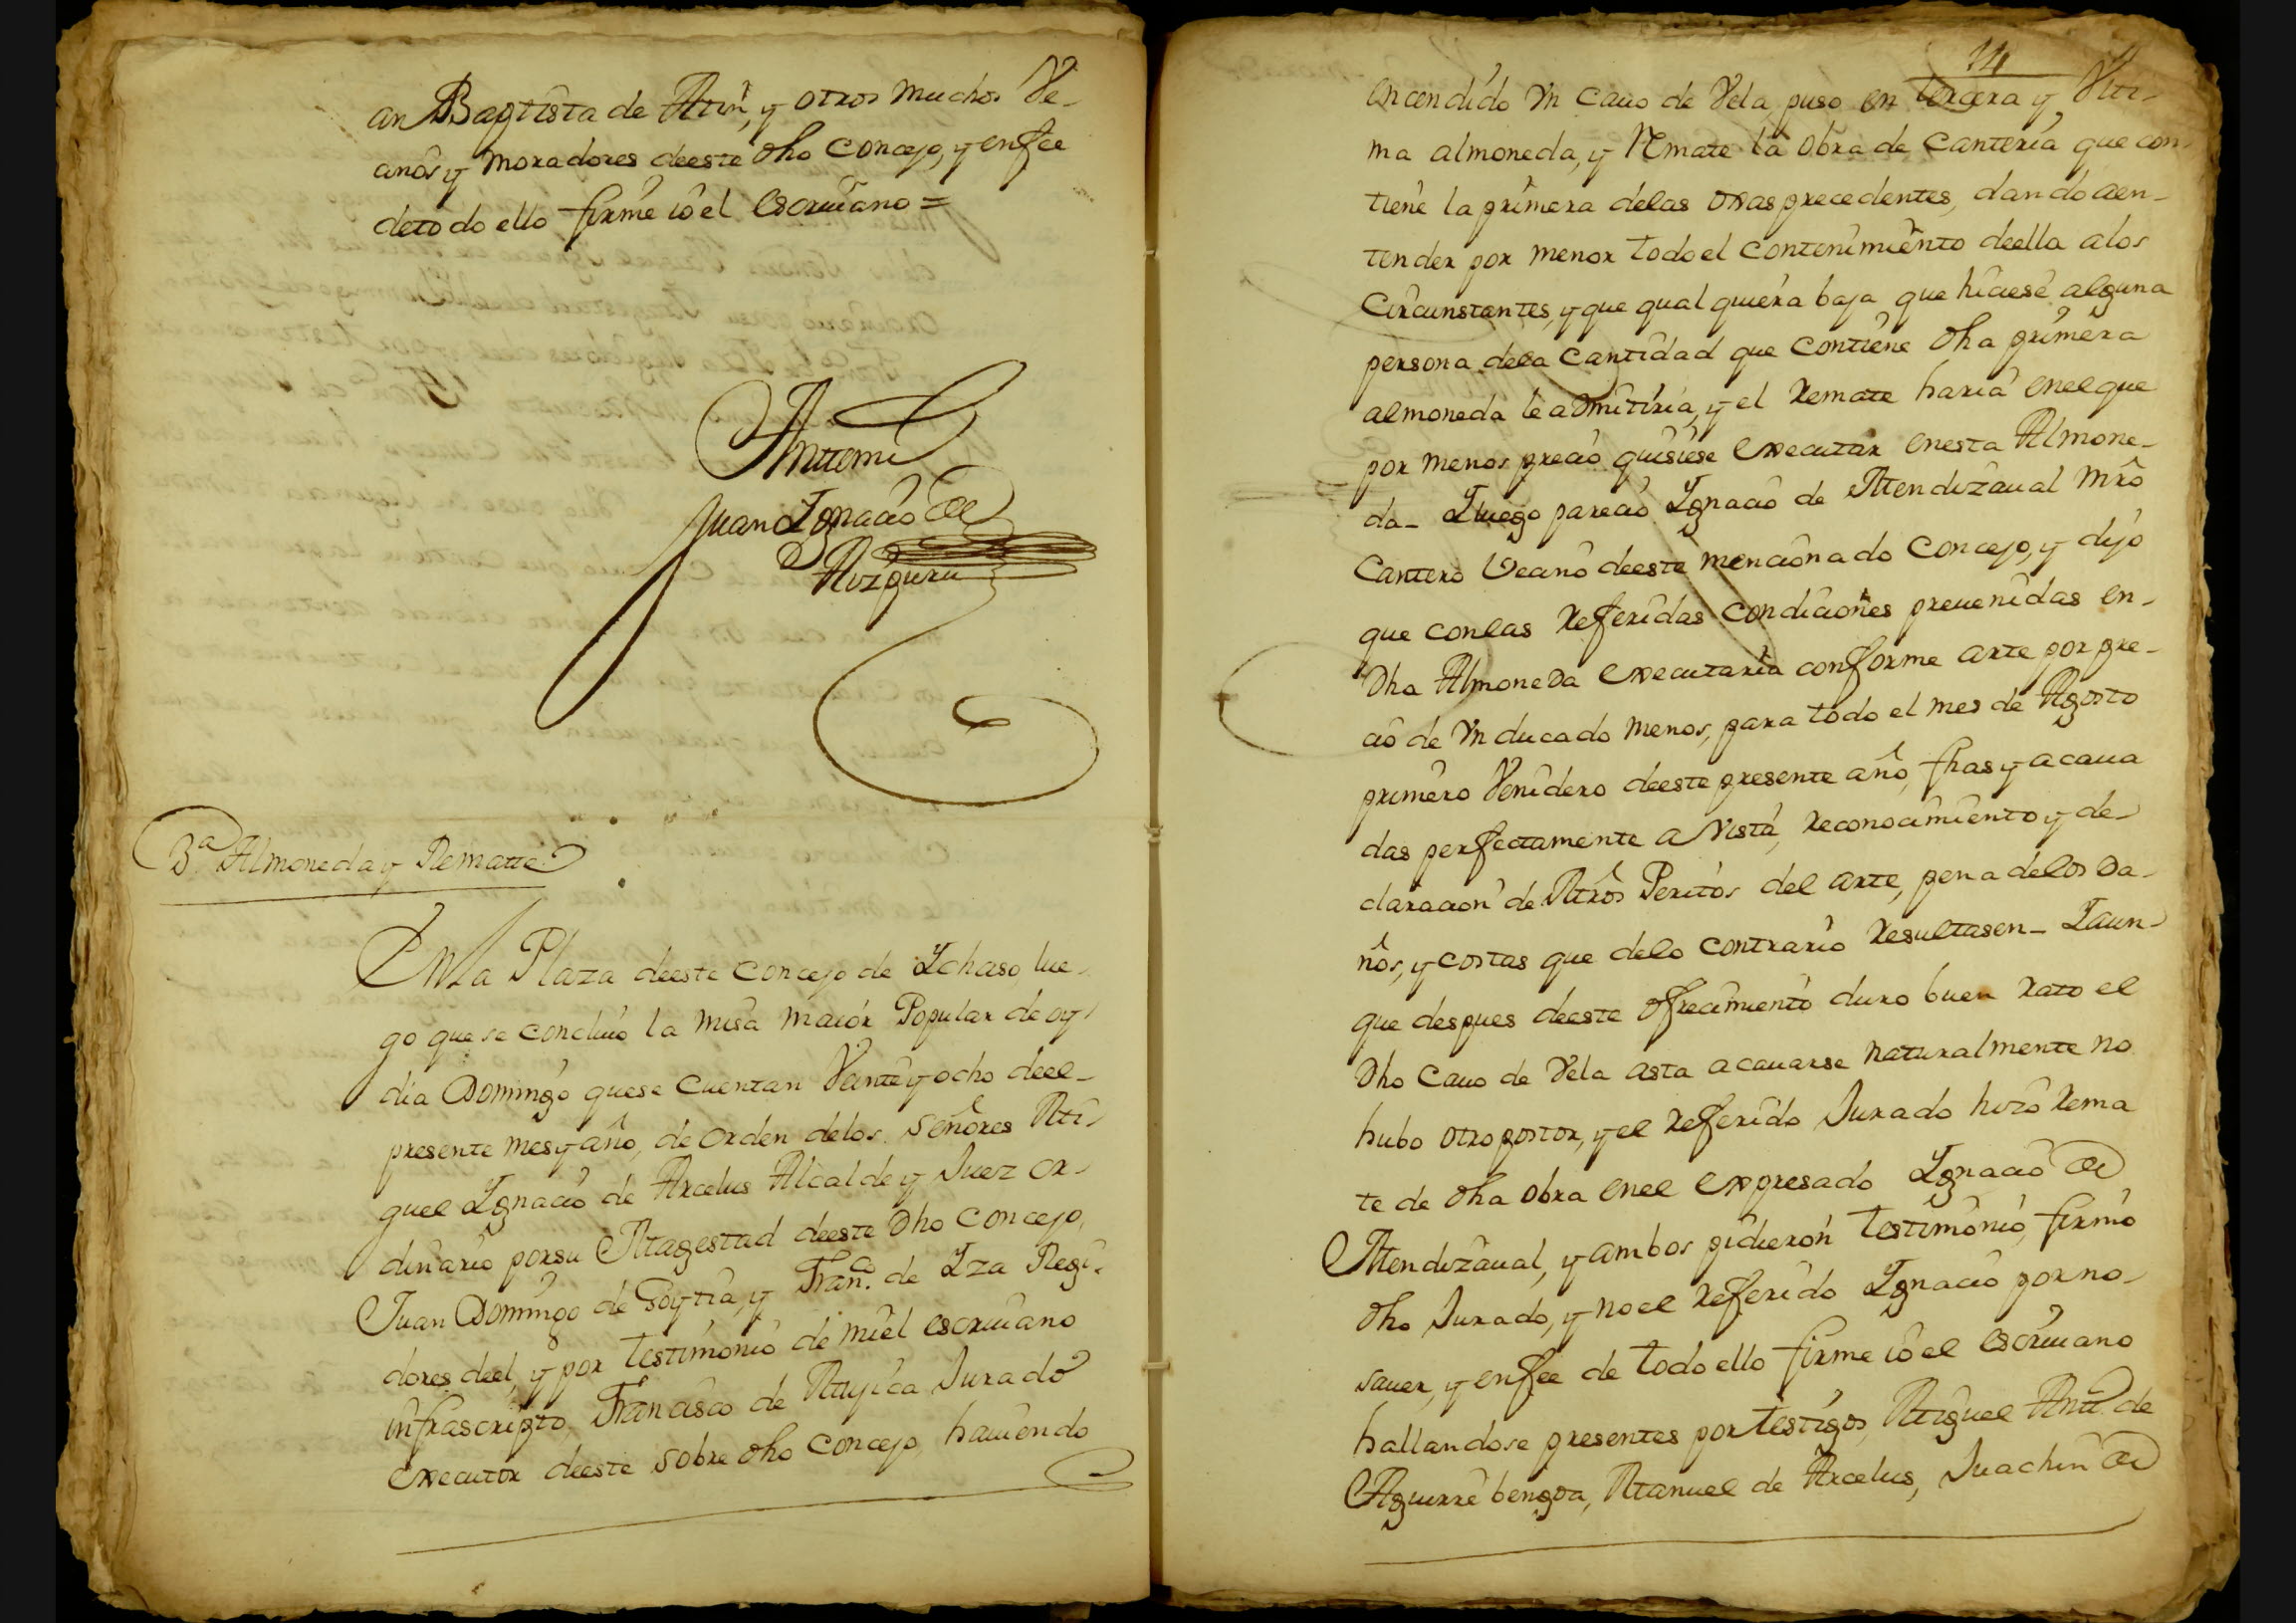 an Baptista de Atin, y otros muchos Ve-
cinos y moradores deeste dho Concejo, y enfee
detodo ello firme io el escriuano =
Antemi
Juan Ignacio de
Aizpuru
3ª Almoneda y Rematte
En la Plaza deeste Concejo de Ichaso, lue-
go que se concluio la misa maior Popular de oy
dia Domingo quese cuentan Veinte y ocho deel-
presente mes y año, de orden delos señores Mi-
guel Ignacio de Arcelus Alcalde y Juez or-
dinario porsu Magestad deeste dho Concejo,
Juan Domingo de Goytia, y Fran.co de Iza Regi-
dores deel, y por testimonio de mi el escriuano
infrascripto, Francisco de Mujica Jurado
executor deeste sobre dho Concejo, hauiendo
14
encendido Vn cauo de Vela puso en tercera y Vlti-
ma almoneda, y Remate la obra de Canteria que con-
tiene la primera delas otras precedentes, dando aen-
tender por menor todo el contenimiento deella alos
Circunstantes, y que qual quiera baja que hiciese alguna
persona dela Cantidad que contiene dha primera
almoneda le admitiria, y el Remate haria enel que
por menos precio quisiese executar enesta Almone-
da_ I luego parecio Ignacio de Mendizaual Mro
Cantero Vecino deeste mencionado Concejo, y dijo
que conlas Referidas Condiciones preuenidas en-
dha Almoneda executaria conforme arte por pre-
cio de Vn ducado menos, para todo el mes de Agosto
primero Venidero deeste presente año, fhas y acaua
das perfectamente a Vista, Reconocimiento y de-
claracion de Mros Peritos del arte, pena delos Da-
ños, y costas que delo contrario Resultasen_ I aun-
que despues deeste ofrecimiento duro buen rato el
dho Cauo de Vela asta acauarse naturalmente no
hubo otro postor, y el Referido Jurado hizo Rema
te de dha obra enel expresado Ignacio de
Mendizaual, y ambos pidieron testimonio, firmo
dho Jurado, y no el Referido Ignacio por no-
sauer, y enfee de todo ello firme io el escriuano
hallandose presentes por testigos, Miguel Antt.o de
Aguirrebengoa, Manuel de Arcelus, Juachin de